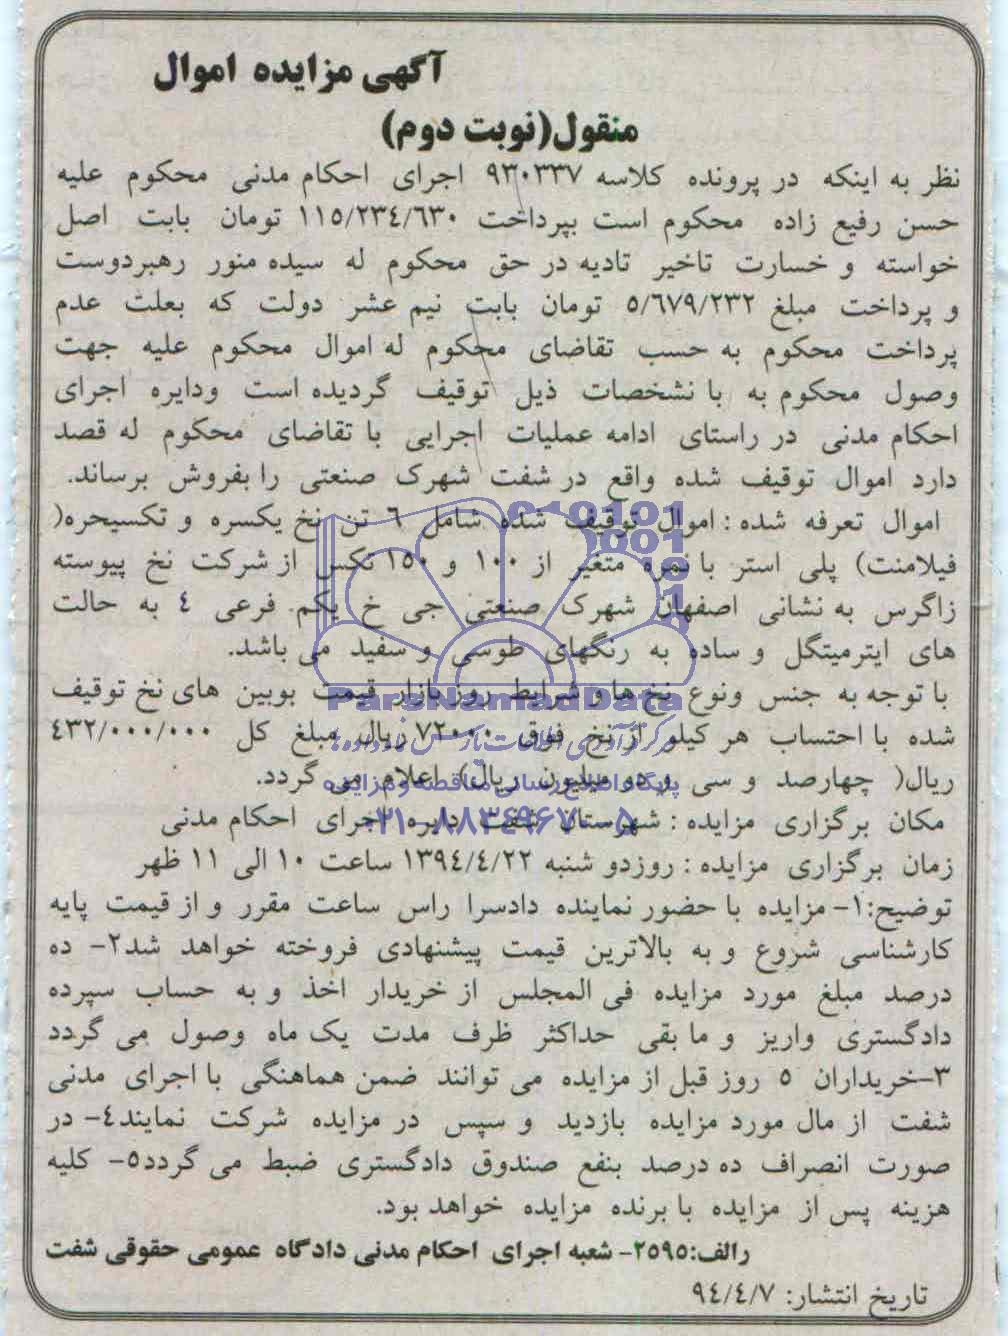 آگهی مزایده اموال
منقول(نوبت دوم)
نظر به اینکه در پرونده کلاسه ۹۳۰۳۳۷ اجرای احکام مدنی محکوم علیه
حسن رفیع زاده محکوم است بپرداخت ۱۱۵/۲۳٤/٦۳۰ تومان بابت اصل
خواسته و خسارت تاخیر تادیه در حق محکوم له سیده منور رهبردوست
و پرداخت مبلغ ۵/٦۷۹/۲۳۲ تومان بابت نیم عشر دولت که بعلت عدم
پرداخت محکوم به حسب تقاضای محکوم له اموال محکوم علیه جهت
وصول محکوم به با نشخصات ذیل توقیف گردیده است ودایره اجرای
احکام مدنی در راستای ادامه عملیات اجرایی با تقاضای محکوم له قصد
دارد اموال توقیف شده واقع در شفت شهرک صنعتی را بفروش برساند.
اموال تعرفه شده : اموال توقیف شده شامل ٦ تن نخ یکسره و تکسیحره(
فیلامنت) پلی استر با نمره متغیر از ۱۰۰ و ۱۵۰ تکس از شرکت نخ پیوسته
زاگرس به نشانی اصفهان شهرک صنعتی جی خ یکم فرعی ٤ به حالت
های ایترمیتگل و ساده به رنگهای طوسی و سفید می باشد.
با توجه به جنس ونوع نخ ها و شرایط روز بازار قیمت بوبین های نخ توقیف
شده با احتساب هر کیلو از نخ فوق ۷۲۰۰۰ ریال مبلغ کل ٤۳۲/۰۰۰/۰۰۰
ریال( چهارصد و سی و دو میلیون ریال) اعلام می گردد.
مکان برگزاری مزایده : شهرستان شفت دایره اجرای احکام مدنی
زمان برگزاری مزایده : روزدو شنبه ۱۳۹٤/٤/۲۲ ساعت ۱۰ الی ۱۱ ظهر
توضیح:۱- مزایده با حضور نماینده دادسرا راس ساعت مقرر و از قیمت پایه
کارشناسی شروع و به بالاترین قیمت پیشنهادی فروخته خواهد شد۲- ده
درصد مبلغ مورد مزایده فی المجلس از خریدار اخذ و به حساب سپرده
دادگستری واریز و ما بقی حداکثر ظرف مدت یک ماه وصول می گردد
۳-خریداران ۵ روز قبل از مزایده می توانند ضمن هماهنگی با اجرای مدنی
شفت از مال مورد مزایده بازدید و سپس در مزایده شرکت نمایند٤- در
صورت انصراف ده درصد بنفع صندوق دادگستری ضبط می گردد۵- کلیه
هزینه پس از مزایده با برنده مزایده خواهد بود.
رالف:۲۵۹۵- شعبه اجرای احکام مدنی دادگاه عمومی حقوقی شفت
تاریخ انتشار: ۹٤/٤/۷
ParsNamadData
پایگاه اطلاع رسانی مناقصه و مزایده
۰۲۱-۸۸۳۴۹۶۷۰-۵